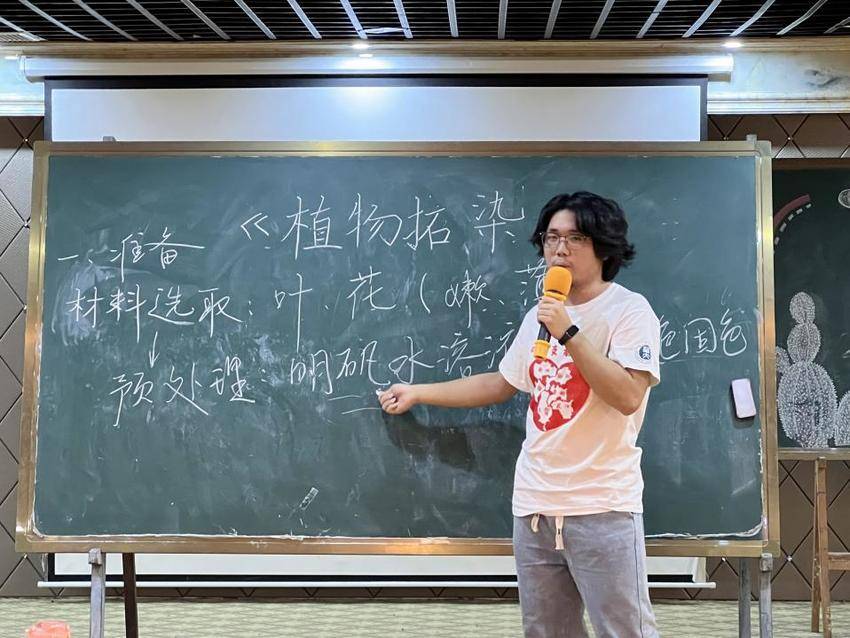 《植物拓染
一、准备
材料选取：叶、花（嫩、薄
↓
预处理：明矾水溶液 色固色